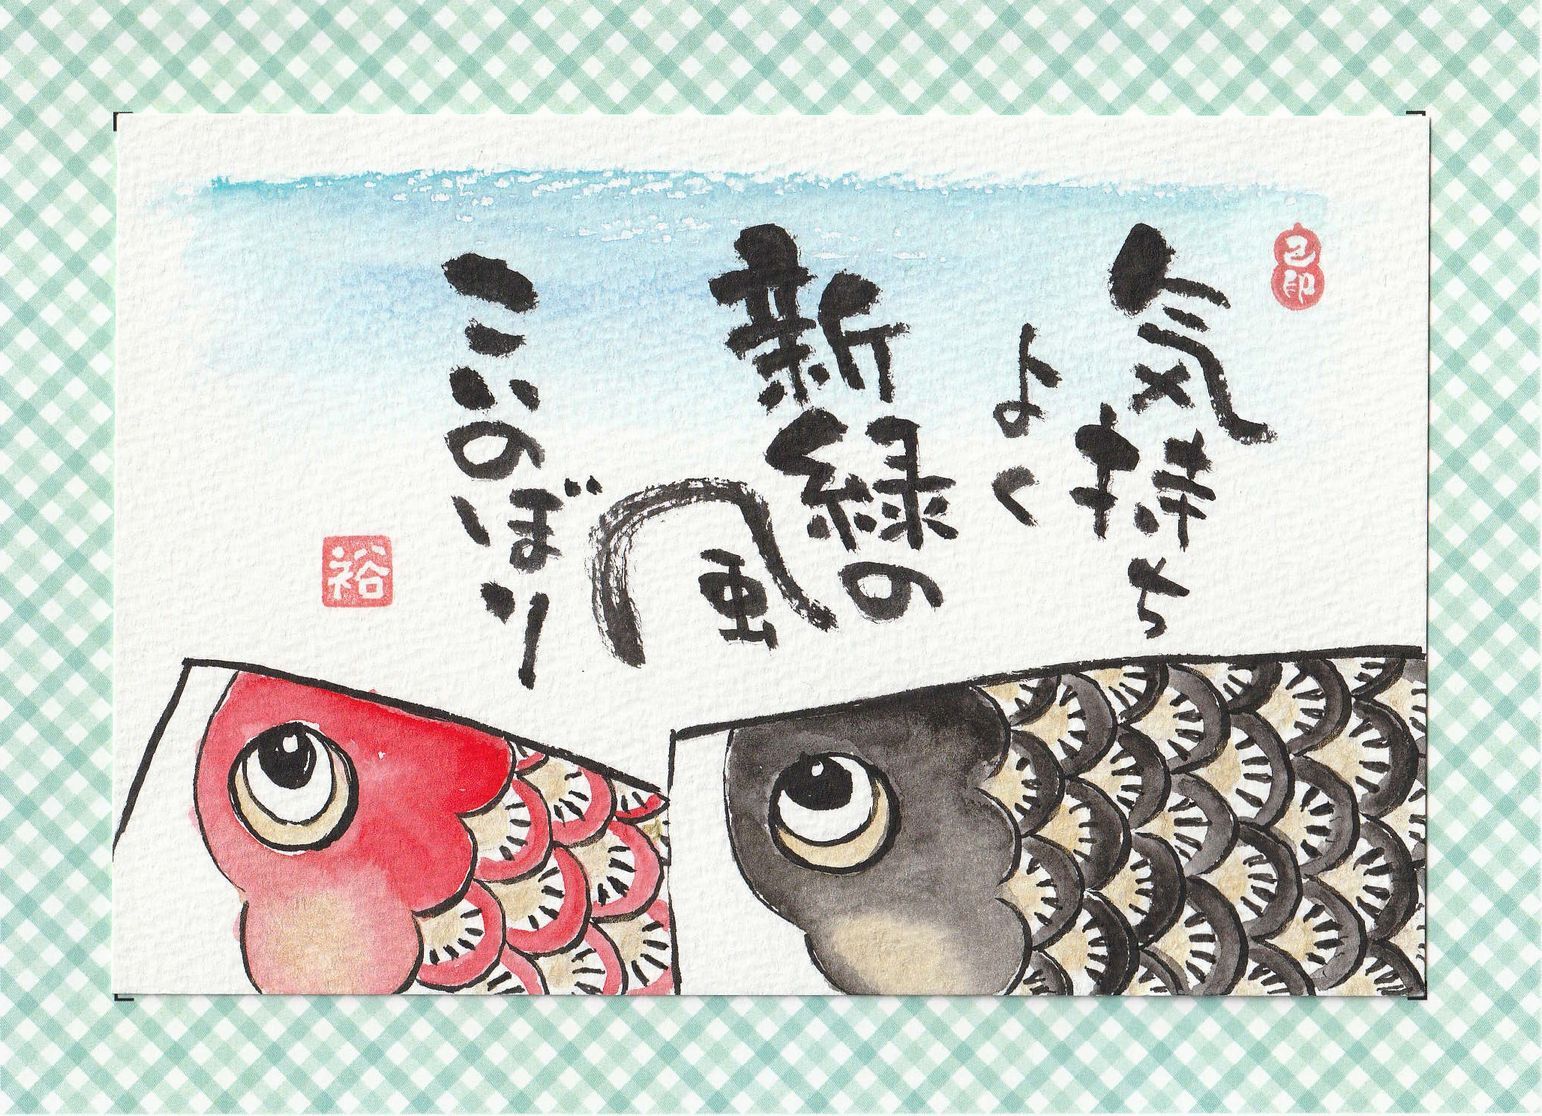 気持ち
よく
新緑の
風
こいのぼり
裕